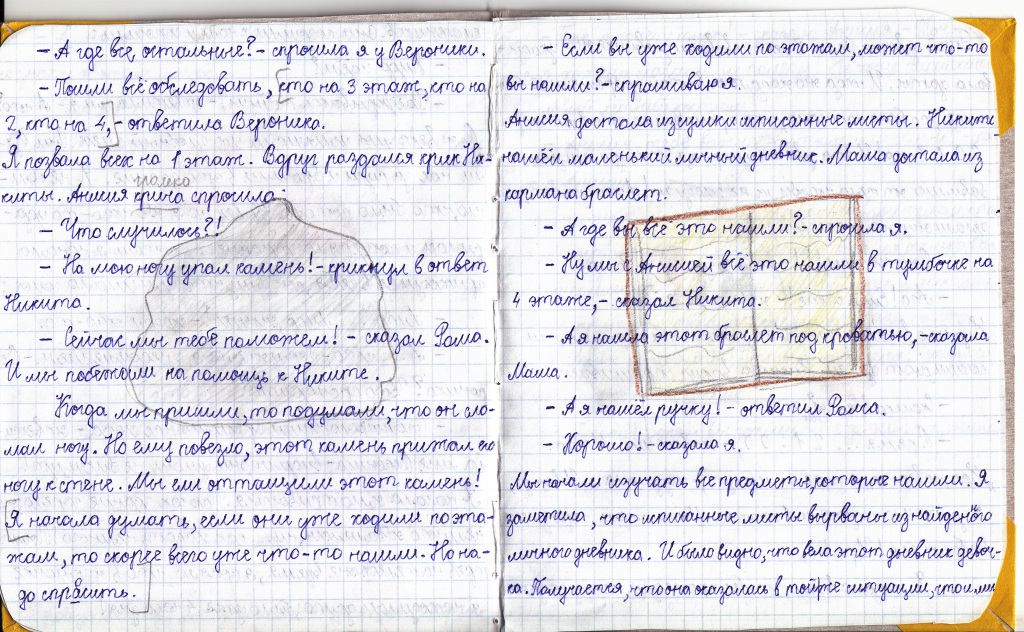 - А где все, остальные? - спросила я у Вероники.
- Пошли всё обследовать, кто на 3 этаж, кто на
2, кто на 4, - ответила Вероника.
Я позвала всех на 1 этаж. Вдруг раздался крик Ни-
киты. Анисия громко крича спросила:
- Что случилось?!
- На мою ногу упал камень! - крикнул в ответ
Никита.
- Сейчас мы тебе поможем! - сказал Рома.
И мы побежали на помощь к Никите.
Когда мы пришли, то подумали, что он сло-
мал ногу. Но ему повезло, этот камень прижал его
ногу к стене. Мы ели оттащили этот камень!
Я начала думать, если они уже ходили по эта-
жам, то скорее всего уже что-то нашли. Но на-
до спрасить.
- Если вы уже ходили по этажам, может что-то
вы нашли? - спрашиваю я.
Анисия достала из сумки исписанные листы. Никита
нашёл маленький личный дневник. Маша достала из
кармана браслет.
- А где вы всё это нашли? - спросила я.
- Ну мы с Анисией всё это нашли в тумбочке на
4 этаже, - сказал Никита.
- А я нашла этот браслет под кроватью, - сказала
Маша.
- А я нашёл ручку! - ответил Рома.
- Хорошо! - сказала я.
Мы начали изучать все предметы, которые нашли. Я
заметила, что исписанные листы вырваны из найденого
личного дневника. И было видно, что вела этот дневник девоч-
ка. Получается, что она оказалась в той же ситуации, что и мы